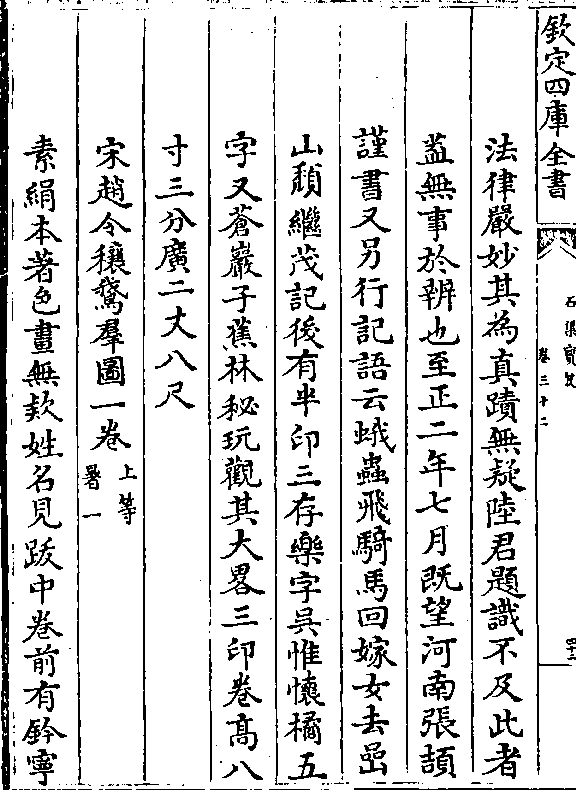 欽定四庫全書
石渠寶笈
卷三十二
法律嚴妙其為真蹟無疑陸君題識不及此者
葢無事於辨也至正二年七月既望河南張頡
謹書又另行記語云蛾蟲飛騎馬回嫁女去嵒
山頹繼茂記後有半印三存樂字吳惟懷橘五
字又蒼巖子蕉林秘玩觀其大畧三印卷髙八
寸三分廣二丈八尺
宋趙令穰鵞羣圖一卷上等暑一
素絹本著色畫無款姓名見跋中卷前有鈐寧